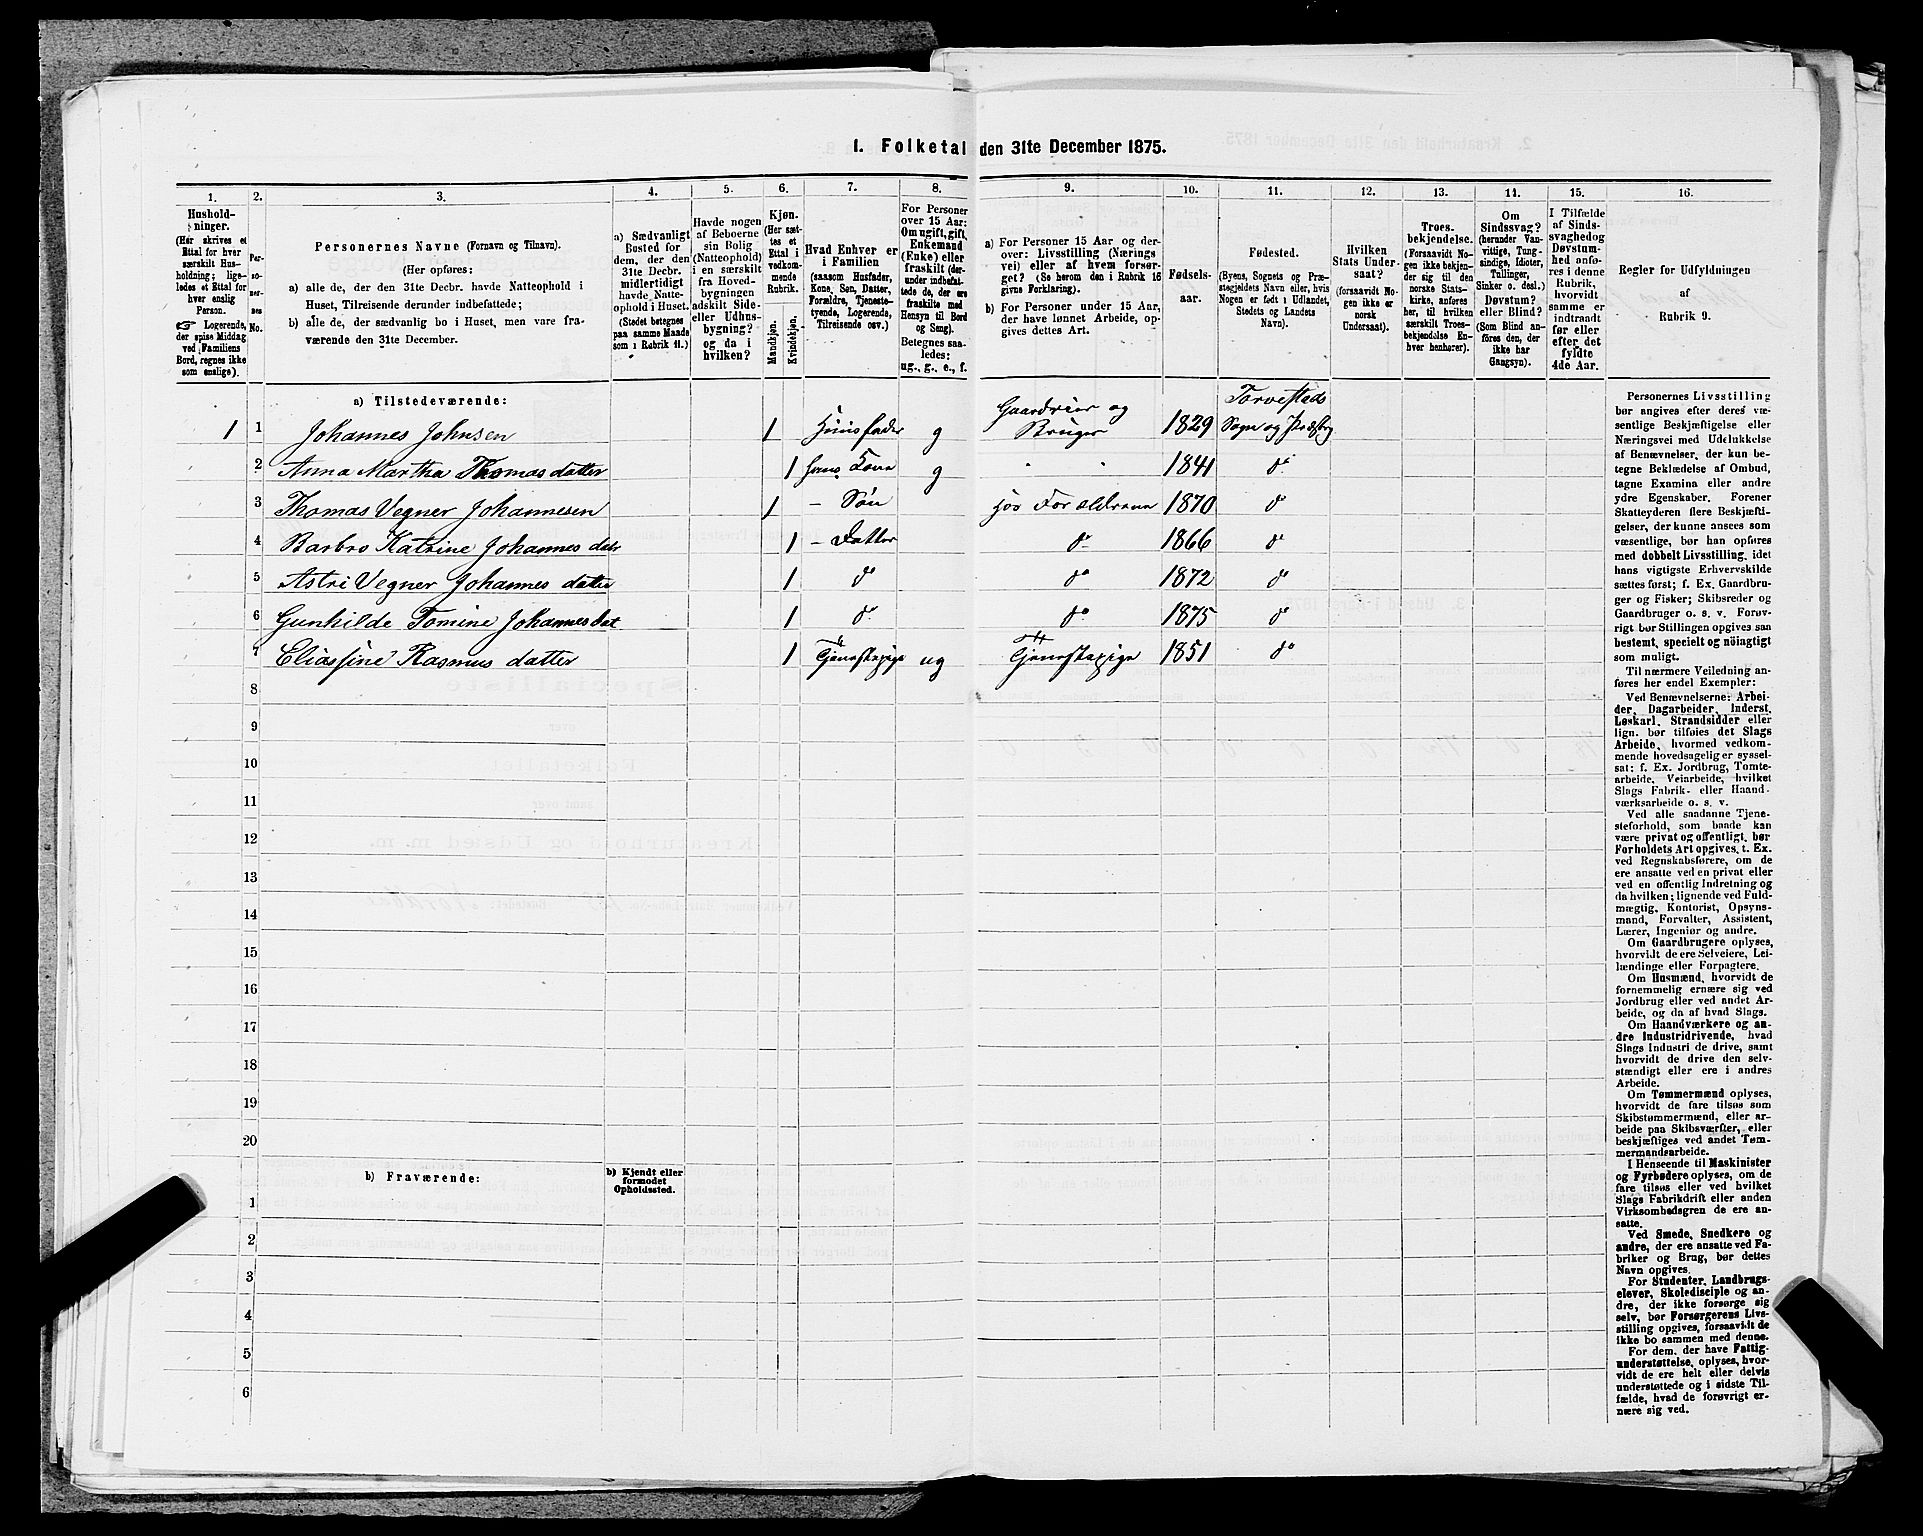 1. Folketal den 31te December 1875.
1. 2. 3. 4. 5. 6. 7. 8. 9. 10. 11. 12. 13. 14. 15. 16.
Hushold-
ninger.
(Her skrives et
Ettal for hver
særskilt Hus-
holdning; lige-
ledes et Ettal for
hver enslig
Person.
☞ Logerende,
der spise Middag
ved Familiens
Bord, regnes ikke
som enslige).
Per-
so-
ner-
nes
No.
Personernes Navne (Fornavn og Tilnavn).
(Her opføres:
a) alle de, der den 31te Decbr. havde Natteophold i
Huset, Tilreisende derunder indbefattede;
b) alle de, der sædvanlig bo i Huset, men vare fra-
værende den 31te December.
a) Sædvanligt
Bosted for
dem, der den
31te Decbr.
midlertidigt
havde Natte-
ophold i Huset.
(Stedet betegnes
paa samme Maade
som i Rubrik 11.)
Havde nogen
af Beboerne
sin Bolig
(Natteophold)
i en særskilt
fra Hoved-
bygningen
adskilt Side-
eller Udhus-
bygning?
og da i
hvilken?
Kjøn.
(Her sæt-
tes et
Ettal i
vedkom-
mende
Rubrik.
Mandkjøn.
Kvindekjøn.
Hvad Enhver er
i Familien
(saasom Husfader,
Kone, Søn, Datter,
Forældre, Tjeneste-
tyende, Logerende,
Tilreisende osv.)
For Personer
over 15 Aar:
Om ugift, gift,
Enkemand
(Enke) eller
fraskilt (der-
under indbefat-
tede de, der ere
fraskilte med
Hensyn til Bord
og Seng).
Betegnes saa-
ledes:
ug., g., e., f.
a) For Personer 15 Aar og der-
over: Livsstilling (Nærings-
vei) eller af hvem forsør-
get? (Se herom den i Rubrik 16
givne Forklaring).
b) For Personer under 15 Aar,
der have lønnet Arbeide, op-
gives dettes Art.
Fødsels-
aar.
Fødested.
(Byens, Sognets og Præ-
stegjeldets Navn eller, hvis
Nogen er født i Udlandet,
Stedets og Landets
Navn).
Hvilken
Stats Under-
saat?
(forsaavidt No-
gen ikke er
norsk
Undersaat).
Troes-
bekjendelse.
(Forsaavidt No-
gen ikke bekjen-
der sig til den
norske Stats-
kirke, anføres
her, til hvilken
særskilt Troes-
bekjendelse En-
hver henhører).
Om
Sindssvag?
(herunder Van-
vittige, Tung-
sindige, Idioter,
Tullinger,
Sinker o. desl.)
Døvstum?
eller Blind?
(Som Blind an-
føres den, der
ikke har
Gangsyn).
I Tilfælde
af Sinds-
svaghedog
Døvstum-
hed anfø-
res i denne
Rubrik,
hvorvidt
samme er
indtraadt
før eller
efter det
fyldte
4de Aar.
Regler for Udfyldningen
af
Rubrik 9.
a) Tilstedeværende:
1 1 Johannes Johnsen 1 Huusfader g Gaardeier og Bruger 1829 Torvestads Sogn og Præstg
2 Anna Martha Thomasdatter 1 hans Kone g 1841 do
3 Thomas Vegner Johannesen 1 – Søn hos Forældrene 1870 do
4 Barbro Katrine Johannes datr 1 – Datter do 1866 do
5 Astri Vegner Johannes datter 1 do do 1872 do
6 Gunhilde Tomine Johannesdat 1 do do 1875 do
7 Eliassine Rasmus datter 1 Tjenestepige ug Tjenestepige 1851 do
8
9
10
11
12
13
14
15
16
17
18
19
20
b) Fraværende:
b) Kjendt eller
formodet
Opholdssted.
1
2
3
4
5
6
Personernes Livsstilling
bør angives efter deres væ-
sentlige Beskjæftigelse eller
Næringsvei med Udelukkelse
af Benævnelser, der kun be-
tegne Beklædelse af Ombud,
tagne Examina eller andre
ydre Egenskaber. Forener
Skatteyderen flere Beskjæfti-
gelser, der kunne ansees som
væsentlige, bør han opføres
med dobbelt Livsstilling, idet
hans vigtigste Erhvervskilde
sættes først; f. Ex. Gaardbru-
ger og Fisker; Skibsreder og
Gaardbruger o. s. v. Forøv-
rigt bør Stillingen opgives saa
bestemt, specielt og nöiagtigt
som muligt.
Til nærmere Veiledning an-
føres her endel Exempler:
Ved Benævnelserne: Arbei-
der, Dagarbeider, Inderst,
Løskarl, Strandsidder eller
lign. bør tilføies det Slags
Arbeide, hvormed vedkom-
mende hovedsagelig er syssel-
sat: f. Ex. Jordbrug, Tomte-
arbeide, Veiarbeide, hvilket
Slags Fabrik- eller Haand-
værksarbeide o. s. v.
Ved alle saadanne Tjene-
steforhold, som baade kan
være privat og offentligt, bør
Forholdets Art opgives, t. Ex.
ved Regnskabsførere, om de
ere ansatte ved en privat eller
ved en offentlig Indretning og
da hvilken; lignende ved Fuld-
mægtig, Kontorist, Opsyns-
mand, Forvalter, Assistent,
Lærer, Ingeniør og andre.
Om Gaardbrugere oplyses,
hvorvidt de ere Selveiere, Lei-
lændinge eller Forpagtere.
Om Husmænd, hvorvidt de
fornemmelig ernære sig ved
Jordbrug eller ved andet Ar-
beide, og da af hvad Slags.
Om Haandværkere og an-
dre Industridrivende, hvad
Slags Industri de drive, samt
hvorvidt de drive den selv-
stændigt eller ere i andres
Arbeide.
Om Tømmermænd oplyses,
hvorvidt de fare tilsøs som
Skibstømmermænd, eller ar-
beide paa Skibsværfter, eller
beskjæftiges ved andet Tøm-
mermandsarbeide.
I Henseende til Maskinister
og Fyrbødere oplyses, om de
fare tilsøs eller ved hvilket
Slags Fabrikdrift eller anden
Virksomhedsgren de ere an-
satte.
Ved Smede, Snedkere og
andre, der ere ansatte ved Fa-
briker og Brug, bør dettes
Navn opgives.
For Studenter, Landbrugs-
elever, Skoledisciple og an-
dre, der ikke forsørge sig
selv, bør Forsørgerens Livs-
stilling opgives, forsaavidt de
ikke bo sammen med denne.
For dem, der have Fattig-
understøttelse, oplyses, hvor-
vidt de ere helt eller delvis
understøttede og i sidste Til-
fælde, hvad de forøvrigt er-
nære sig ved.